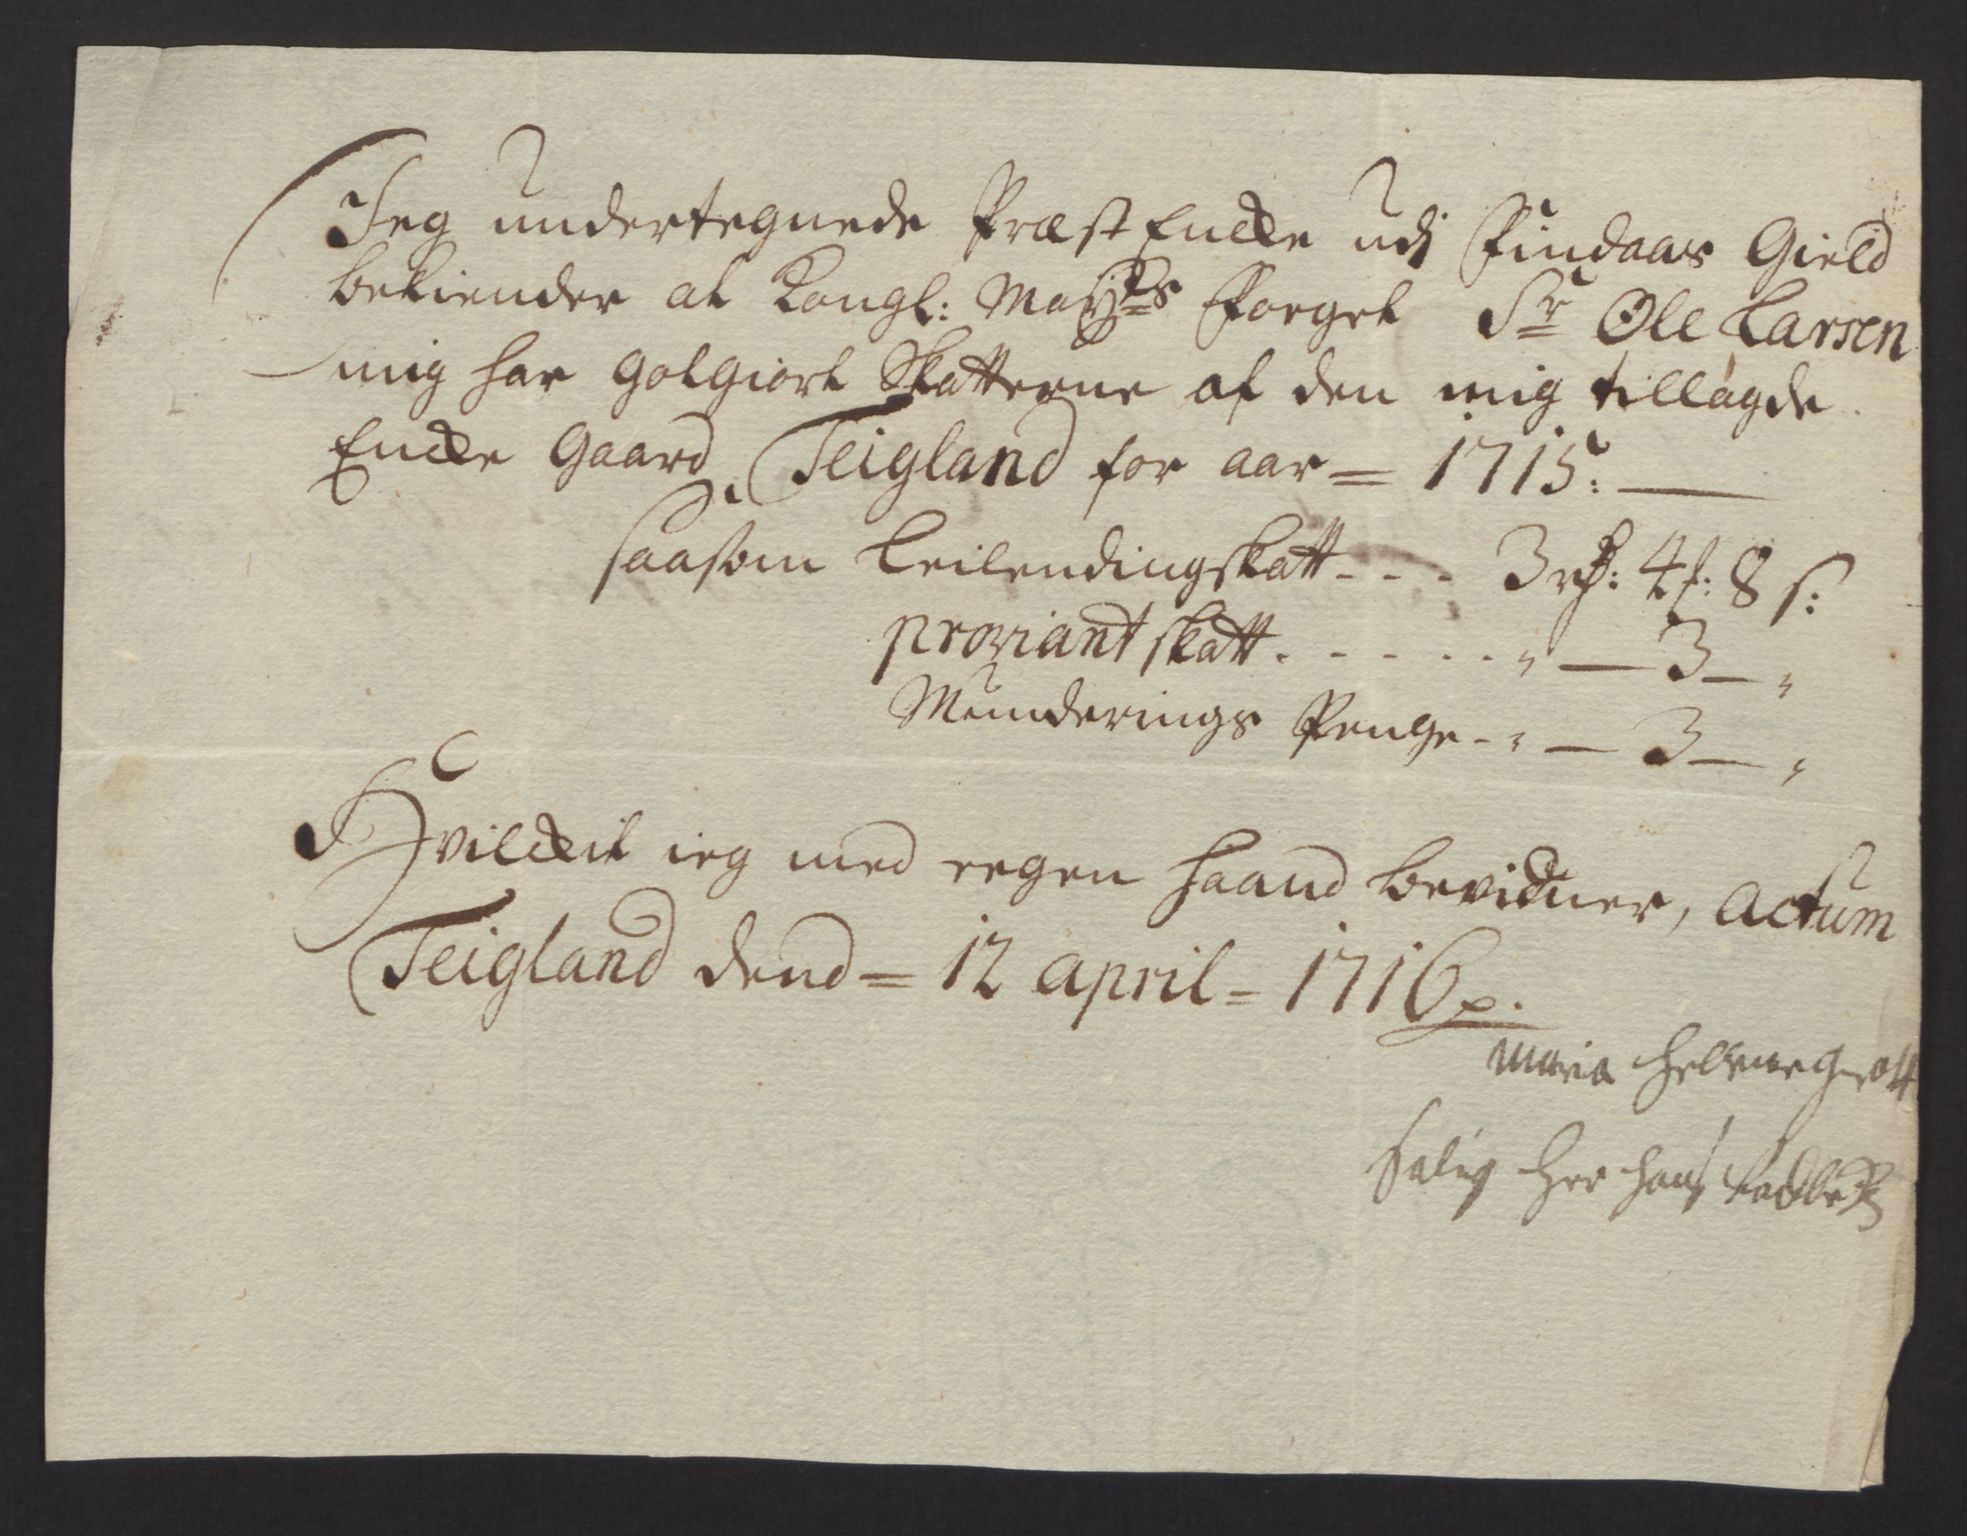 Jeg undertegnede Præst Encke udj Findaas Gield
bekiender at Kongl: May:ts Foeget Sr Ole Larsen
mig har Gotgiort Skatterne af den mig tillagde
Encke Gaard Teigland for aar = 1715:
saasom Leilendingskatt - - - 3 rd: 4 s: 8 s:
proviant skatt. - - - - - „ — 3 — „
Munderings Penge - „ — 3 — „
Hvilcket ieg med eegen Haand bevidner, Actum
Teigland dend = 12 april = 1716
Maria
Salig Her Hans